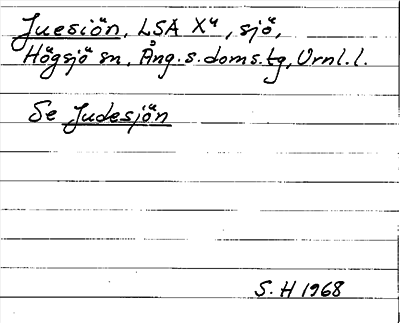 Juesiön, LSA X⁴, sjö,
Högsjö sn, Ång.s.doms.tg, Vrnl.l.
Se Judesjön
S.H 1968